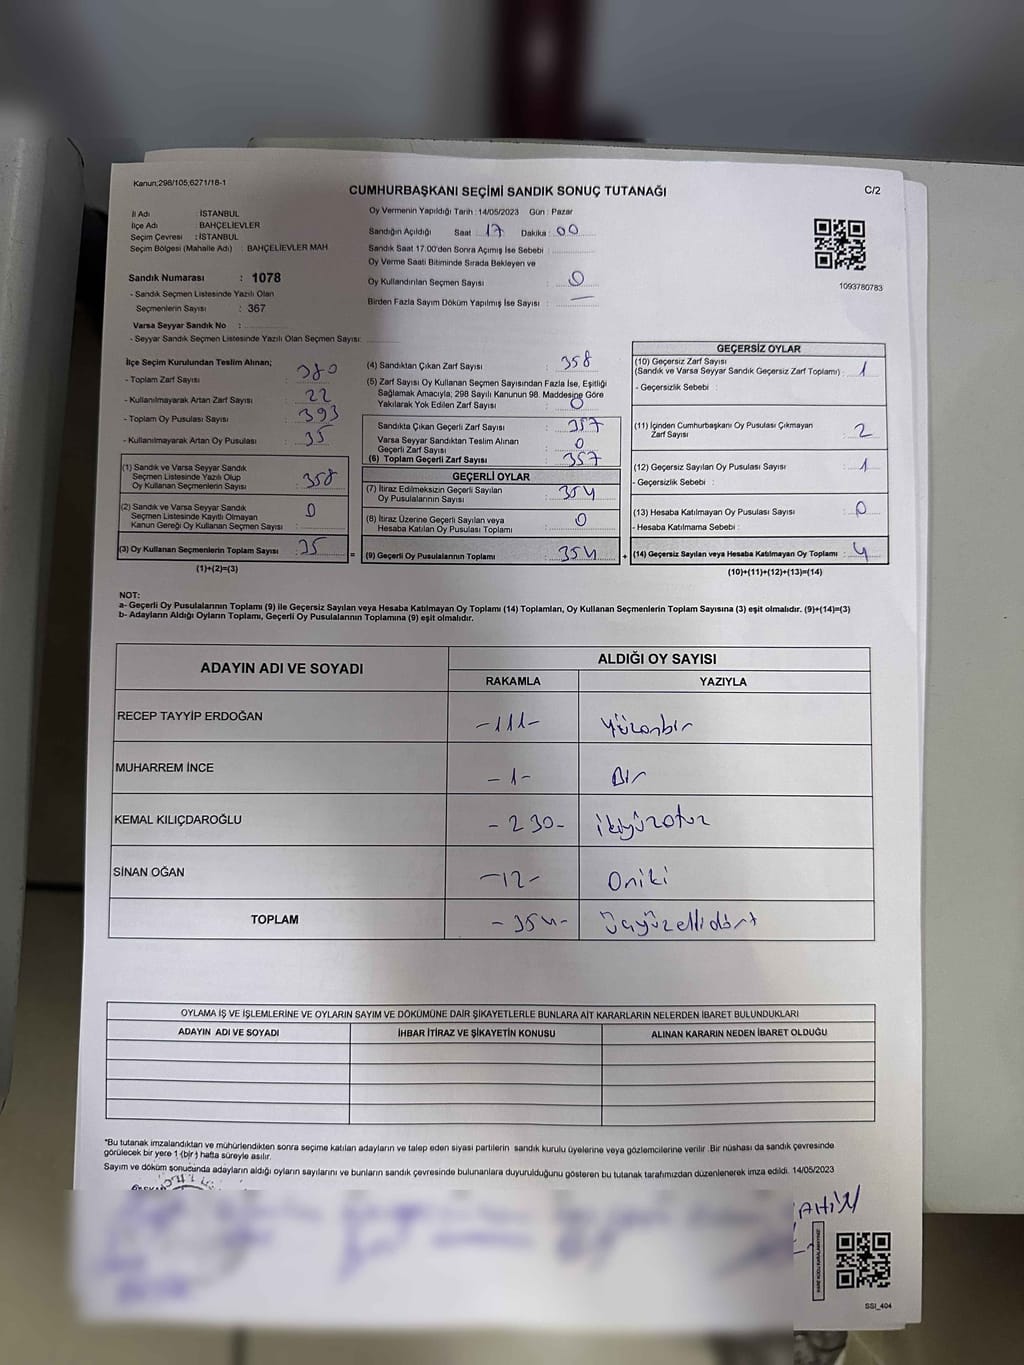 Kanun;298/105,6271/18-1
CUMHURBAŞKANI SEÇİMİ SANDIK SONUÇ TUTANAĞI
C/2
İl Adı : İSTANBUL
İlçe Adı : BAHÇELİEVLER
Seçim Çevresi : İSTANBUL
Seçim Bölgesi (Mahalle Adı) : BAHÇELİEVLER MAH
Oy Vermenin Yapıldığı Tarih : 14/05/2023 Gün : Pazar
Sandığın Açıldığı Saat : 17 Dakika : 00
Sandık Saat 17.00'den Sonra Açımış İse Sebebi :
Oy Verme Saati Bitiminde Sırada Bekleyen ve
Oy Kullandırılan Seçmen Sayısı : 0
Birden Fazla Sayım Döküm Yapılmış İse Sayısı : —
1093780783
Sandık Numarası : 1078
- Sandık Seçmen Listesinde Yazılı Olan
Seçmenlerin Sayısı : 367
Varsa Seyyar Sandık No :
- Seyyar Sandık Seçmen Listesinde Yazılı Olan Seçmen Sayısı:
İlçe Seçim Kurulundan Teslim Alınan;
- Toplam Zarf Sayısı : 380
- Kullanılmayarak Artan Zarf Sayısı : 22
- Toplam Oy Pusulası Sayısı : 393
- Kullanılmayarak Artan Oy Pusulası : 35
(1) Sandık ve Varsa Seyyar Sandık
Seçmen Listesinde Yazılı Olup
Oy Kullanan Seçmenlerin Sayısı : 358
(2) Sandık ve Varsa Seyyar Sandık
Seçmen Listesinde Kayıtlı Olmayan
Kanun Gereği Oy Kullanan Seçmen Sayısı : 0
(3) Oy Kullanan Seçmenlerin Toplam Sayısı : 35
(1)+(2)=(3)
(4) Sandıktan Çıkan Zarf Sayısı : 358
(5) Zarf Sayısı Oy Kullanan Seçmen Sayısından Fazla İse, Eşitliği
Sağlamak Amacıyla; 298 Sayılı Kanunun 98. Maddesine Göre
Yakılarak Yok Edilen Zarf Sayısı : 0
Sandıkta Çıkan Geçerli Zarf Sayısı : 357
Varsa Seyyar Sandıktan Teslim Alınan
Geçerli Zarf Sayısı : 0
(6) Toplam Geçerli Zarf Sayısı : 357
GEÇERLİ OYLAR
(7) İtiraz Edilmeksizin Geçerli Sayılan
Oy Pusulalarının Sayısı : 354
(8) İtiraz Üzerine Geçerli Sayılan veya
Hesaba Katılan Oy Pusulası Toplamı : 0
= (9) Geçerli Oy Pusulalarının Toplamı : 354 +
GEÇERSİZ OYLAR
(10) Geçersiz Zarf Sayısı
(Sandık ve Varsa Seyyar Sandık Geçersiz Zarf Toplamı) : 1
- Geçersizlik Sebebi :
(11) İçinden Cumhurbaşkanı Oy Pusulası Çıkmayan
Zarf Sayısı : 2
(12) Geçersiz Sayılan Oy Pusulası Sayısı : 1
- Geçersizlik Sebebi :
(13) Hesaba Katılmayan Oy Pusulası Sayısı : 0
- Hesaba Katılmama Sebebi :
(14) Geçersiz Sayılan veya Hesaba Katılmayan Oy Toplamı : 4
(10)+(11)+(12)+(13)=(14)
NOT:
a- Geçerli Oy Pusulalarının Toplamı (9) ile Geçersiz Sayılan veya Hesaba Katılmayan Oy Toplamı (14) Toplamları, Oy Kullanan Seçmenlerin Toplam Sayısına (3) eşit olmalıdır. (9)+(14)=(3)
b- Adayların Aldığı Oyların Toplamı, Geçerli Oy Pusulalarının Toplamına (9) eşit olmalıdır.
ADAYIN ADI VE SOYADI
ALDIĞI OY SAYISI
RAKAMLA YAZIYLA
RECEP TAYYİP ERDOĞAN -111- Yüzonbir
MUHARREM İNCE -1- Bir
KEMAL KILIÇDAROĞLU -230- ikiyüzotuz
SİNAN OĞAN -12- Oniki
TOPLAM -354- üçyüzellidört
OYLAMA İŞ VE İŞLEMLERİNE VE OYLARIN SAYIM VE DÖKÜMÜNE DAİR ŞİKAYETLERLE BUNLARA AİT KARARLARIN NELERDEN İBARET BULUNDUKLARI
ADAYIN ADI VE SOYADI İHBAR İTİRAZ VE ŞİKAYETİN KONUSU ALINAN KARARIN NEDEN İBARET OLDUĞU
*Bu tutanak imzalandıktan ve mühürlendikten sonra seçime katılan adayların ve talep eden siyasi partilerin sandık kurulu üyelerine veya gözlemcilerine verilir. Bir nüshası da sandık çevresinde
görülecek bir yere 1 (bir) hafta süreyle asılır.
Sayım ve döküm sonucunda adayların aldığı oyların sayılarını ve bunların sandık çevresinde bulunanlara duyurulduğunu gösteren bu tutanak tarafımızdan düzenlenerek imza edildi. 14/05/2023
SSI_404